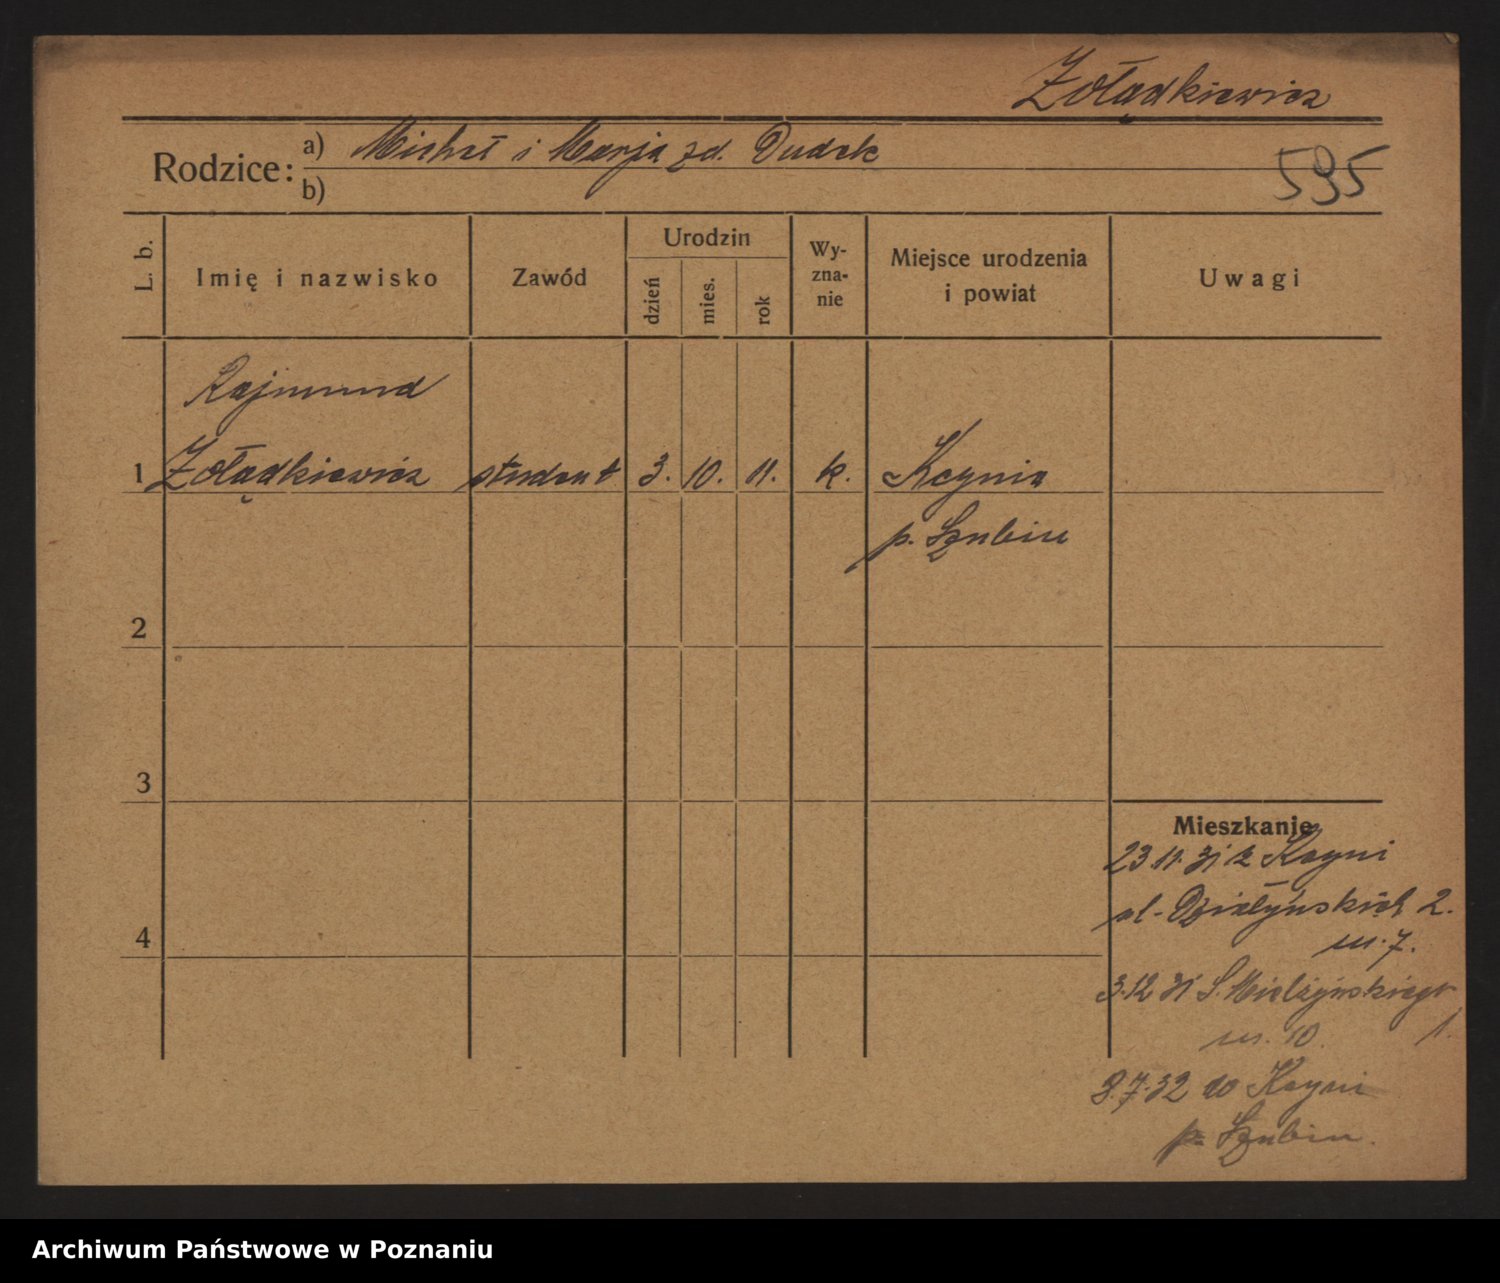 Żołądkiewicz
Rodzice: a) Michał i Marja zd. Dudek
b)
595
L. b.
Imię i nazwisko
Zawód
Urodzin
dzień
mies.
rok
Wy-
zna-
nie
Miejsce urodzenia
i powiat
Uwagi
Rajmund
1 Żołądkiewicz student 3. 10. 11. k. Kcynia
p. Szubin
2
3
4
Mieszkanie
23.11.31 z Kcyni
ul. Działyńskich 2.
m. 7.
3.12 31 S. Mielżyńskiego
1.
m. 10.
8.7.32 do Kcyni
p. Szubin.
Archiwum Państwowe w Poznaniu